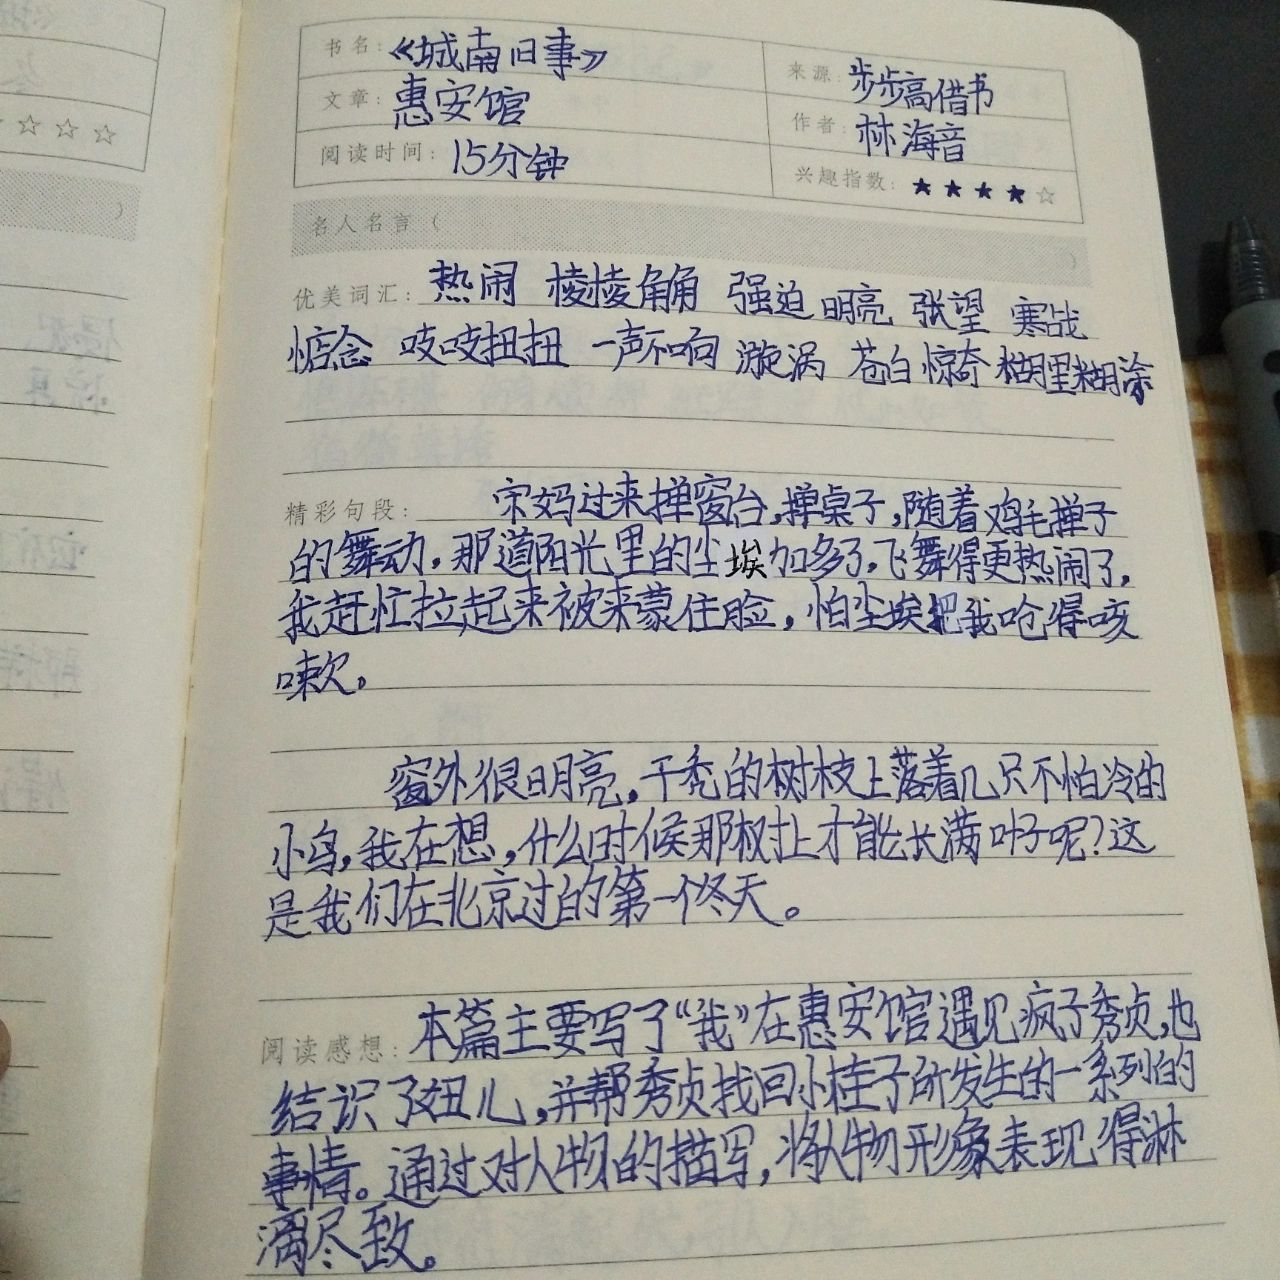 书名:《城南旧事》
来源:步步高借书
文章:惠安馆
作者:林海音
阅读时间:15分钟
兴趣指数:★★★★☆
名人名言( )
优美词汇:热闹 棱棱角角 强迫 明亮 张望 寒战
惦念 吱吱扭扭 一声不响 漩涡 苍白 惊奇 糊里糊涂
精彩句段: 宋妈过来掸窗台,掸桌子,随着鸡毛掸子
的舞动,那道阳光里的尘埃加多了,飞舞得更热闹了,
我赶忙拉起来被来蒙住脸,怕尘埃把我呛得咳
嗽。
窗外很明亮,干秃的树枝上落着几只不怕冷的
小鸟,我在想,什么时候那树上才能长满叶子呢?这
是我们在北京过的第一个冬天。
阅读感想:本篇主要写了“我”在惠安馆遇见疯子秀贞,也
结识了妞儿,并帮秀贞找回小桂子所发生的一系列的
事情。通过对人物的描写,将人物形象表现得淋
漓尽致。